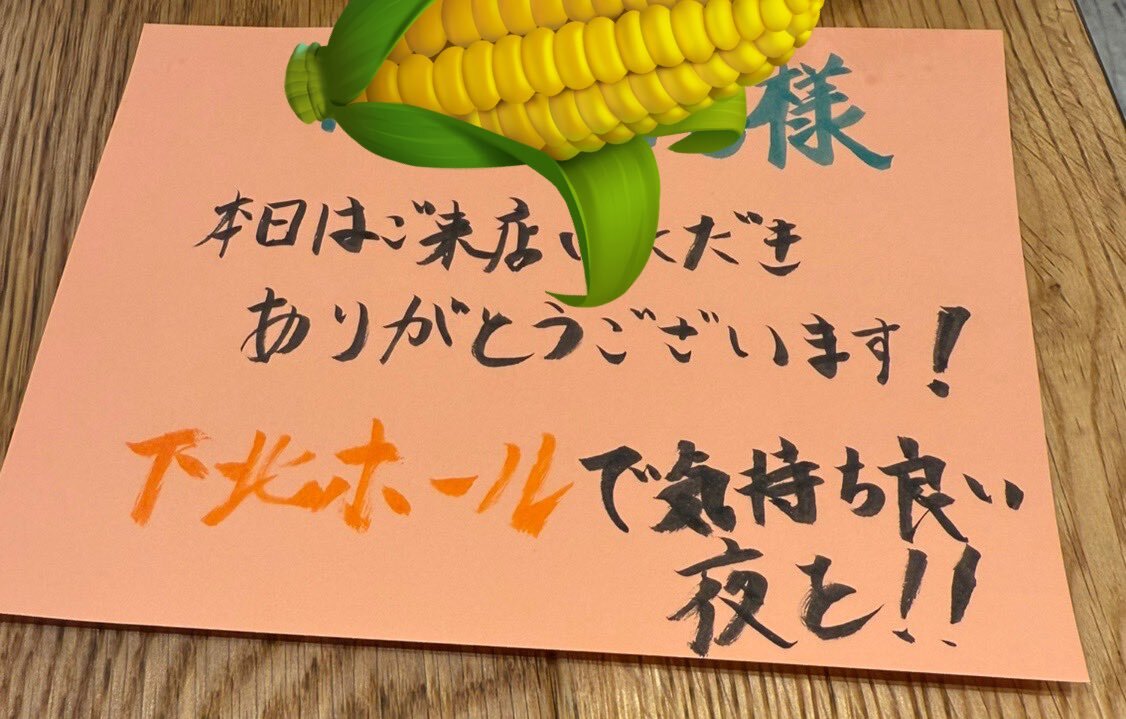 様
本日はご来店いただき
ありがとうございます!
下北ホールで気持ち良い
夜を!!